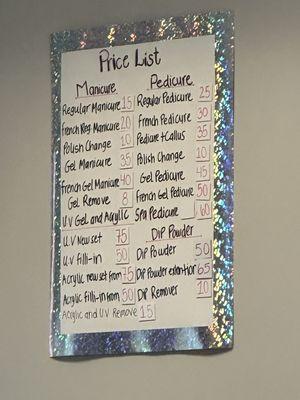 Price List
Manicure
Regular Manicure 15
French Reg Manicure 20
Polish Change 10
Gel Manicure 35
French Gel Manicure 40
Gel Remove 8
U.V Gel and Acrylic
U.V New set 75
U.V fill-in 50
Acrylic new set from 75
Acrylic Fill-in from 50
Acrylic and U.V Remove 15
Pedicure
Regular Pedicure 25
French Pedicure 30
Pedicure + Callus 35
Polish Change 10
Gel Pedicure 45
French Gel Pedicure 50
Spa Pedicure 60
Dip Powder
Dip Powder 50
Dip Powder extention 65
Dip Remover 10